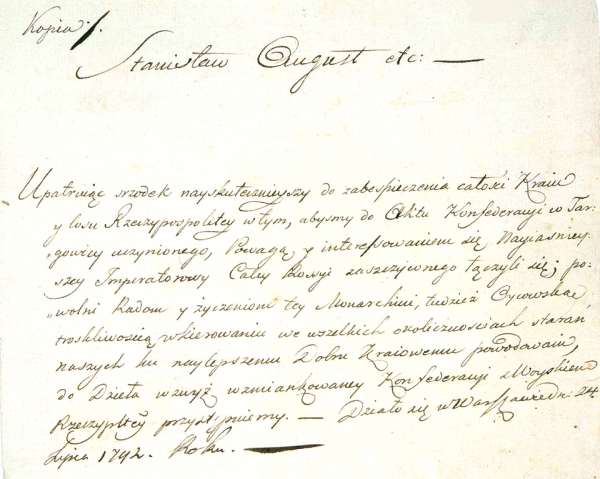 Kopia ·/.
Stanisław August etc: —
Upatruiąc srzodek nayskutecznieyszy do zabespieczenia całości Kraiu
y losu Rzeczypospolitey w tym, abyśmy do Aktu Konfederacyi w Tar-
gowicy uczynionego, Powagą y interessowaniem się Nayiaśniey-
szey Imperatorowy Całey Rossyi zaszczyconego łączyli się; po-
wolni Radom y życzeniom tey Monarchini, tudzież Oycowską
troskliwością w kierowaniu we wszelkich okolicznościach staran
naszych ku naylepszemu Dobru Kraiowemu powodowani,
do Dzieła wzwyż wzmiankowaney Konfederacyi z Woyskiem
Rzeczypltey przystępuiemy. — Działo się w Warszawie dn: 24.
Lipca 1792. Roku. —